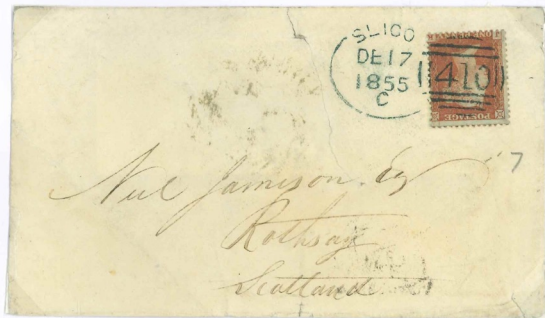 SLIGO
DE 17
1855
C
410
POSTAGE
17
Neil Jamieson. Esq
Rothsay
Scotland